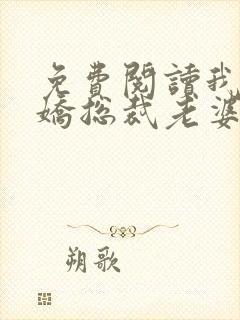 免費閱讀我
嬌總裁老婆
朔歌